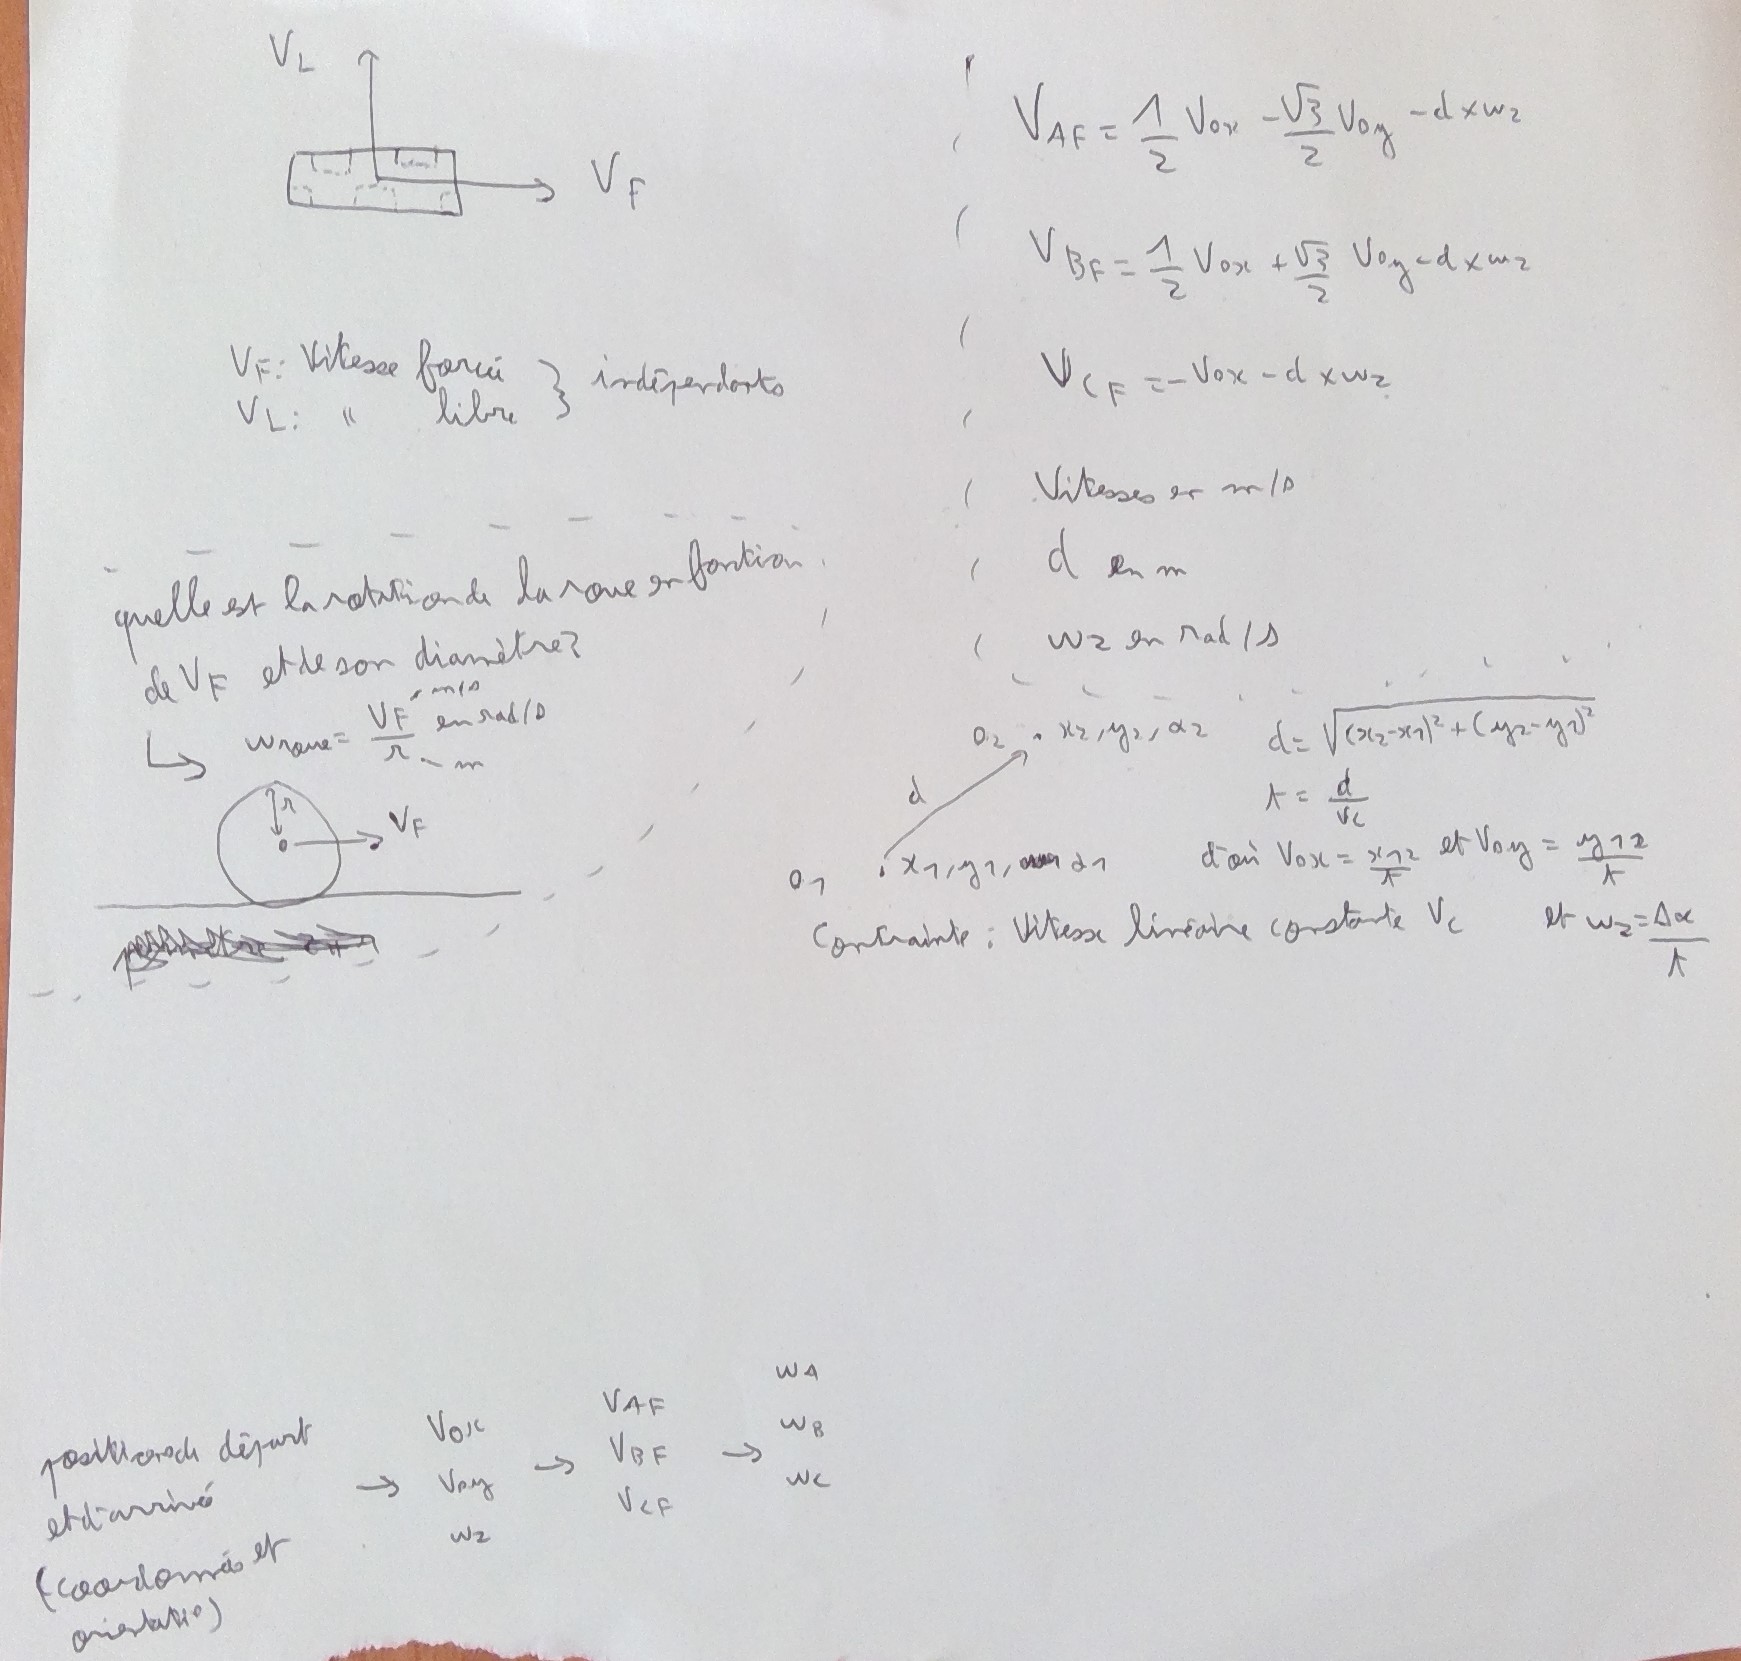 V_L
V_F
V_F: Vitesse forcée } indépendants
V_L: " libre
quelle est la rotation de la roue en fonction
de V_F et de son diamètre?
↳ w_roue = V_F/r en rad/s
m/s
m
r
o
V_F
V_AF = 1/2 V_ox - √3/2 V_oy - d x w_z
V_BF = 1/2 V_ox + √3/2 V_oy - d x w_z
V_CF = - V_ox - d x w_z
Vitesses en m/s
d en m
w_z en rad/s
o_2 . x_2, y_2, α_2
d
o_1 . x_1, y_1, α_1
d = √((x_2-x_1)² + (y_2-y_1)²)
t = d/V_c
d'où V_ox = x_12/t et V_oy = y_12/t
Contrainte : Vitesse linéaire constante V_c et w_z = Δα/t
position de départ
et d'arrivé
(coordonnées et
orientatio)
→ V_ox
V_oy
w_z
→ V_AF
V_BF
V_CF
→ w_A
w_B
w_C